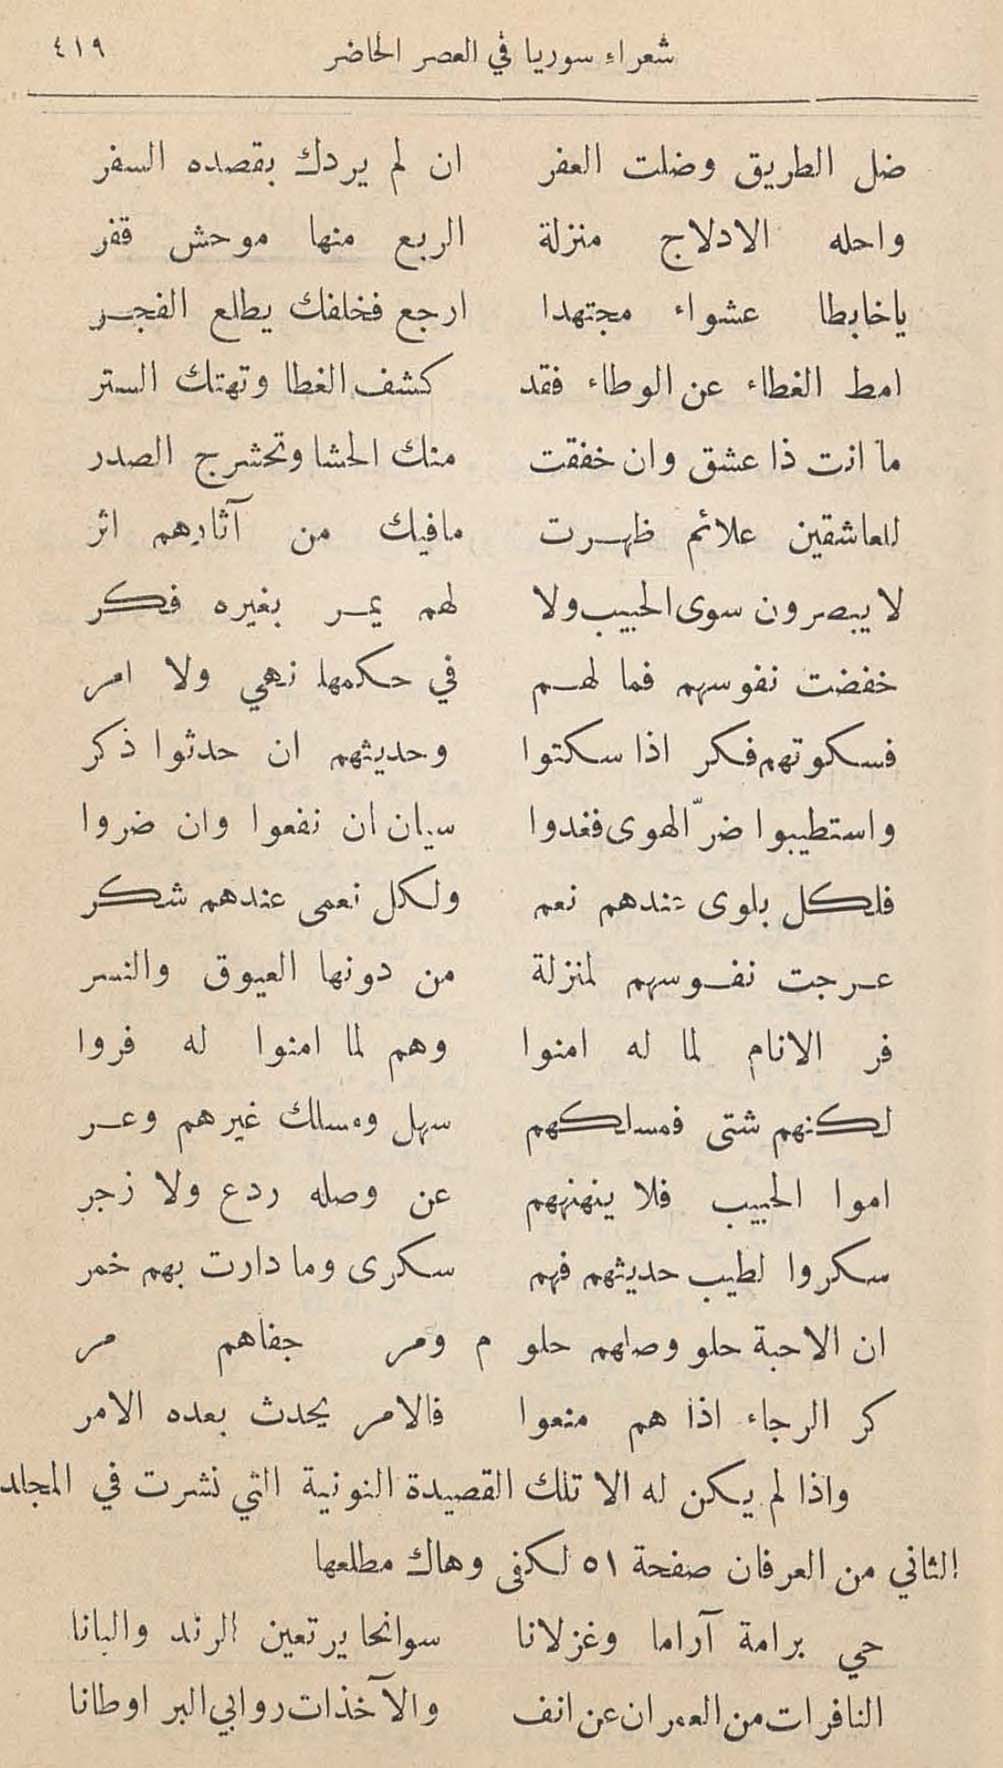 شعراء سوريا في العصر الحاضر ٤١٩
ضل الطريق وضلت العفر ان لم يردك بقصده السفر
واحله الادلاج منزلة الربع منها موحش قفر
ياخابطا عشواء مجتهدا ارجع فخلفك يطلع الفجر
امط الغطاء عن الوطاء فقد كشف الغطا وتهتك الستر
ما انت ذا عشق وان خفقت منك الحشا وتحشرج الصدر
للعاشقين علائم ظهرت مافيك من آثارهم اثر
لا يبصرون سوى الحبيب ولا لهم يمر بغيره فكر
خفضت نفوسهم فما لهم في حكمها نهي ولا امر
فسكوتهم فكر اذا سكتوا وحديثهم ان حدثوا ذكر
واستطيبوا ضرّ الهوى فغدوا سيان ان نفعوا وان ضروا
فلكل بلوى عندهم نعم ولكل نعمى عندهم شكر
عرجت نفوسهم لمنزلة من دونها العيوق والنسر
فر الانام لما له امنوا وهم لما امنوا له فروا
لكنهم شتى فمسلكهم سهل ومسلك غيرهم وعر
اموا الحبيب فلا ينهنههم عن وصله ردع ولا زجر
سكروا لطيب حديثهم فهم سكرى وما دارت بهم خمر
ان الاحبة حلو وصلهم حلو م ومر جفاهم مر
كر الرجاء اذا هم منعوا فالامر يحدث بعده الامر
واذا لم يكن له الا تلك القصيدة النونية التي نشرت في المجلد
الثاني من العرفان صفحة ٥١ لكفى وهاك مطلعها
حي برامة آراما وغزلانا سوانحا يرتعين الرند والبانا
النافرات من العمران عن انف والآخذات روابي البر اوطانا